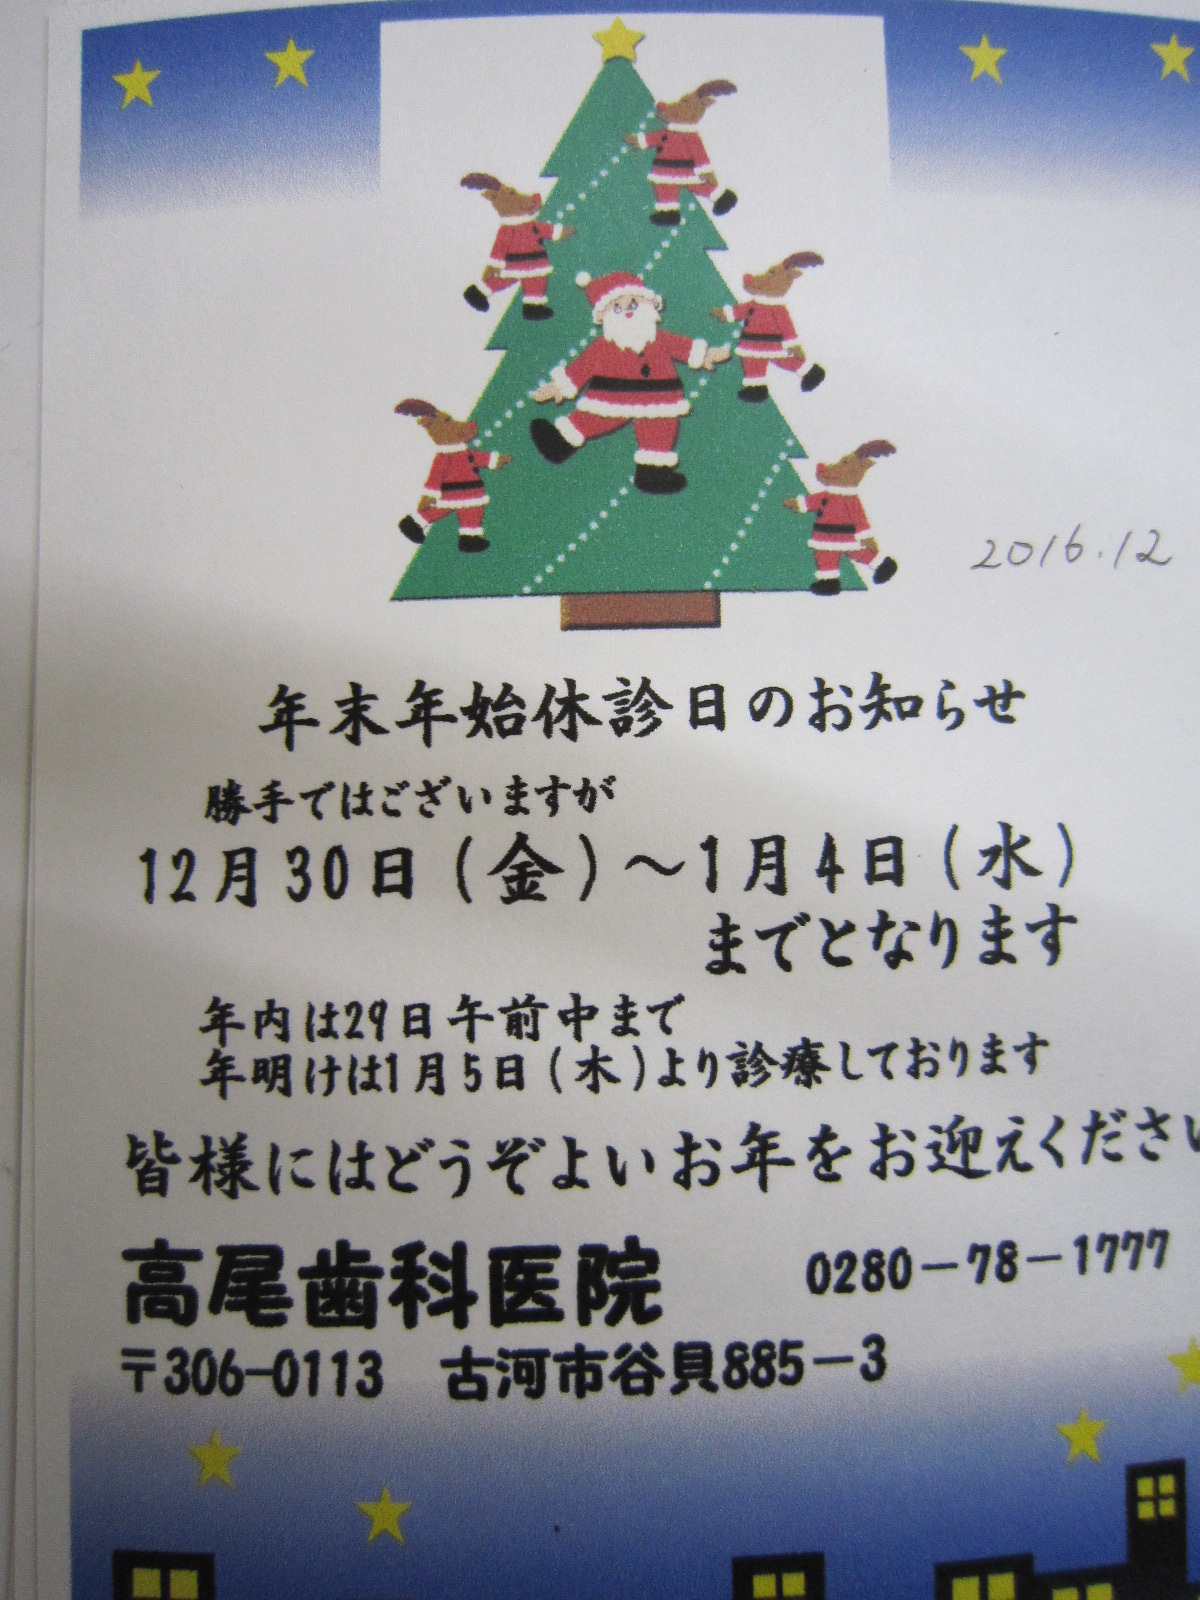 2016.12
年末年始休診日のお知らせ
勝手ではございますが
12月30日(金)～1月4日(水)
までとなります
年内は29日午前中まで
年明けは1月5日(木)より診療しております
皆様にはどうぞよいお年をお迎えください
高尾歯科医院 0280-78-1777
〒306-0113 古河市谷貝885-3